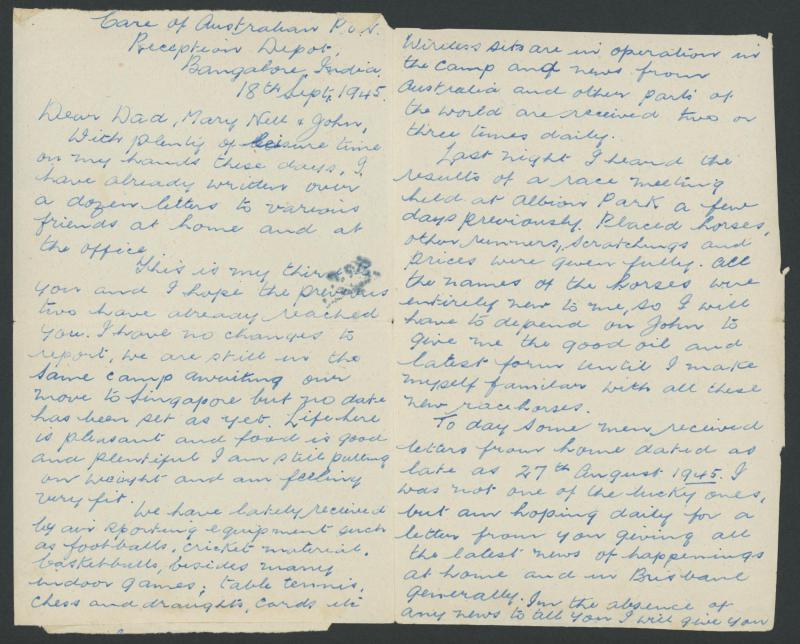 Care of Australian P.W.
Reception Depot,
Bangalore, India.
18th Sept, 1945.
Dear Dad, Mary Nell & John,
With plenty of leisure time
on my hands these days, I
have already written over
a dozen letters to various
friends at home and at
the office.
This is my third to
you and I hope the previous
two have already reached
you. I have no changes to
report, we are still in the
same camp awaiting our
move to Singapore but no date
has been set as yet. Life here
is pleasant and food is good
and plentiful I am still putting
on weight and am feeling
very fit.
We have lately received
by air sporting equipment such
as footballs, cricket material,
basketballs, besides many
indoor games; table tennis,
chess and draughts, cards etc
Wireless sets are in operation in
the camp and news from
Australia and other parts of
the world are received two or
three times daily.
Last night I heard the
results of a race meeting
held at Albion Park a few
days previously. Placed horses,
other runners, scratchings and
prices were given fully. All
the names of the horses were
entirely new to me, so I will
have to depend on John to
give me the good oil and
latest form until I make
myself familiar with all these
new racehorses.
To day some men received
letters from home dated as
late as 27th August 1945. I
was not one of the lucky ones,
but am hoping daily for a
letter from you giving all
the latest news of happenings
at home and in Brisbane
generally. In the absence of
any news to tell you I will give you